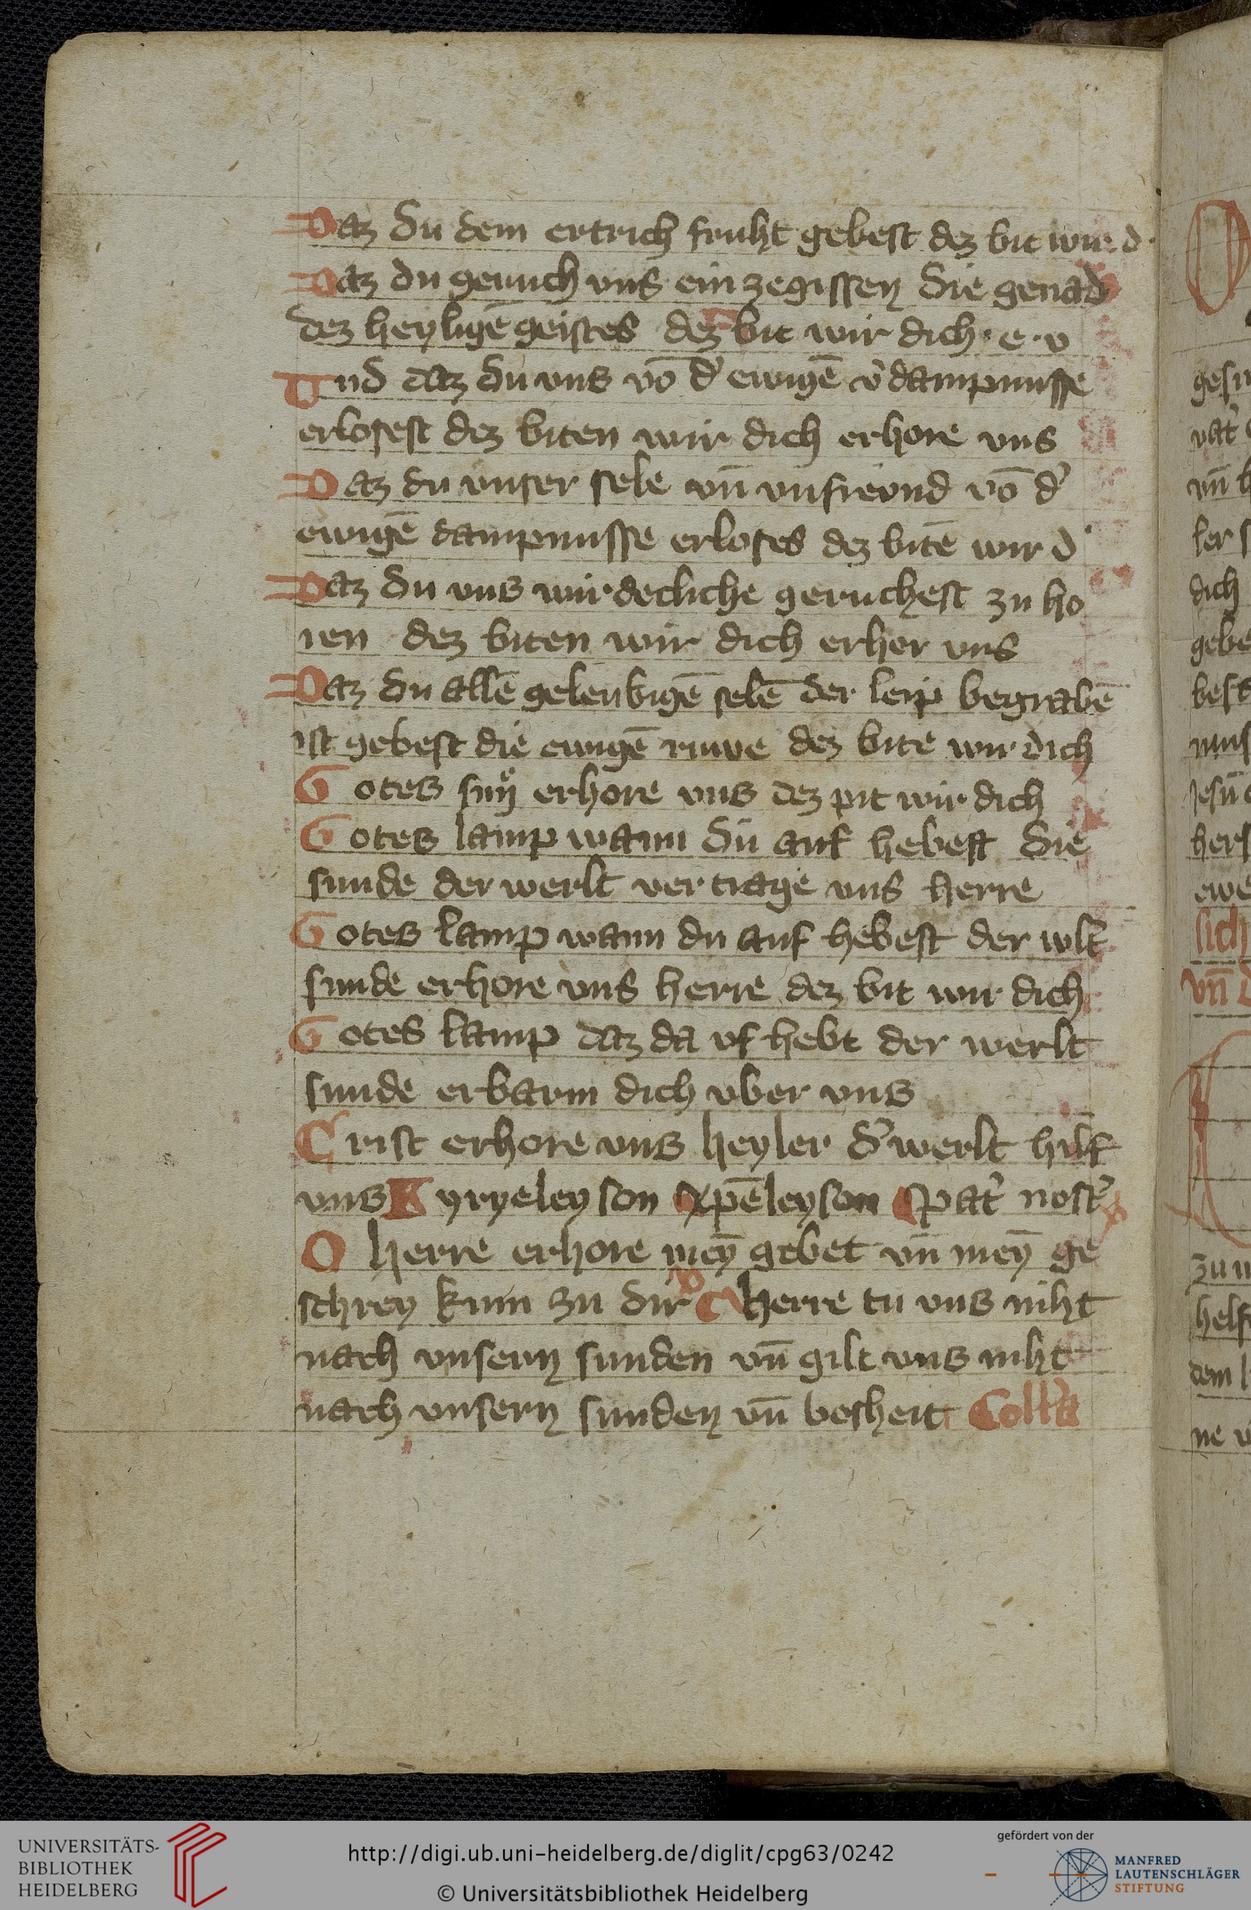 Daz du dem ertrich fruht gebest dez bit wir d·
Daz du geruch vns ein zegissen die genad
dez heyligē geistes dez bit wir dich · e · v
Vnd daz du vns vō d' ewigē v'dampnusse
erlosest dez biten wir dich erhore vns
Daz du vnser sele vn̄ vnsreond vō d'
ewigē dampnusse erloses dez bitē wir d·
Daz du vns wirdecliche geruchest zu ho
ren dez biten wir dich erhor vns
Daz du allē geleubigē selē der leip begrabē
ist gebest die ewigē ruwe dez bite wir dich
Gotes sun erhore vns dez pit wir dich
Gotes lamp wann du auf hebest die
sunde der werlt vertrage vns herre
Gotes lamp wann du auf hebest der wlt
sunde erhore vns herre dez bit wir dich
Gotes lamp daz da vf hebt der werlt
sunde erbarm dich vber vns
Crist erhore vns heyler d' werlt hilf
vns Kyryeleyson xp̄eleyson Pat' nost'
O herre erhore meȳ gebet vn̄ meȳ ge
schrey kum zu dir herre tu vns niht
nach vnsern sunden vn̄ gilt vns niht
nach vnsern sunden vn̄ bosheit Coll'ta
UNIVERSITÄTS-
BIBLIOTHEK
HEIDELBERG
http://digi.ub.uni-heidelberg.de/diglit/cpg63/0242
© Universitätsbibliothek Heidelberg
gefördert von der
MANFRED
LAUTENSCHLÄGER
STIFTUNG